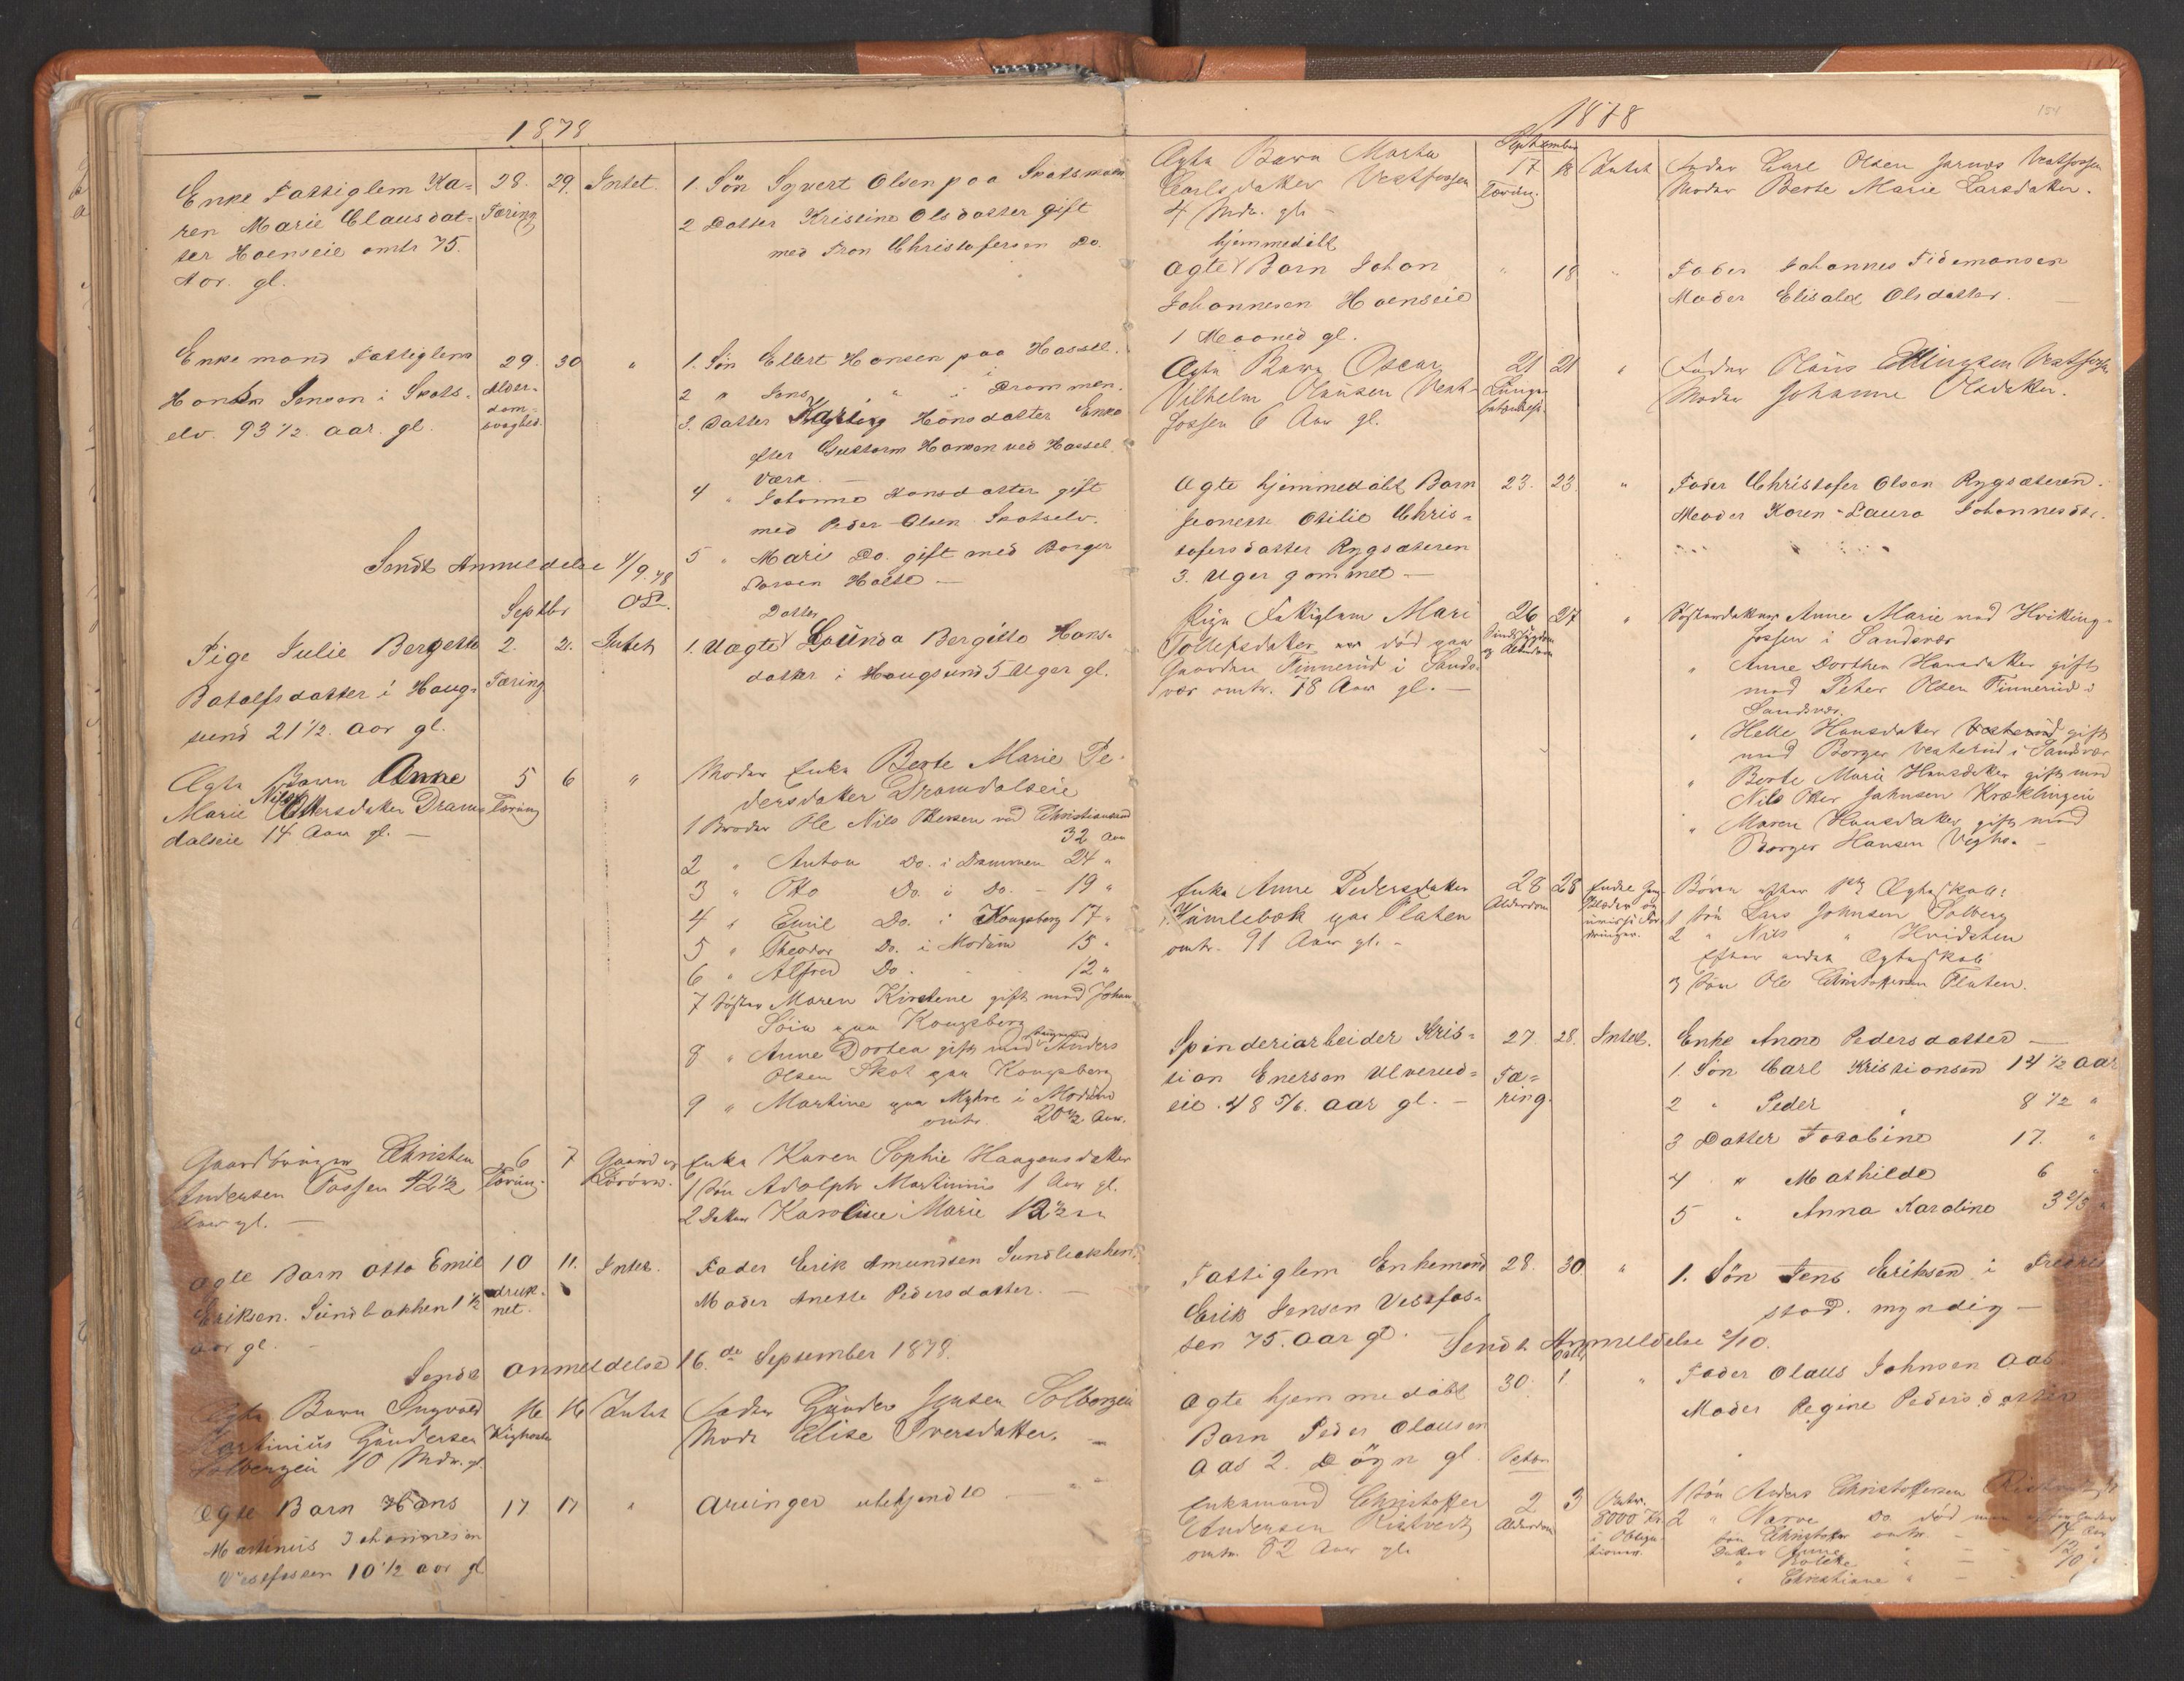 1878
Enke Fattiglem Ka-
ren Marie Clausdat-
ter Hoenseie omtr 75.
Aar. gl.
28.
Tæring
29.
Intet.
1. Sön Syvert Olsen paa
2 Datter Kristine Olsdatter gift
med Tron Christofersen Do.
Enkemand Fattiglem
Hans Jensen i Skots-
elv. 93 1/2 aar. gl.
29.
Alder-
dom-
svaghed.
30
"
1. Sön Ellert Hansen paa Hassel.
2 " Jens " i Drammen.
3. Datter Hansdatter Enke
efter Guttorm Hansen ved Hassel
Værk.
4 " Johanne Hansdatter gift
med Peder Olsen Skotselv.
5 " Marie Do. gift med Borger
Holte —
Sendt Anmeldelse 4/9.78
Septbr
Pige Julie Bergette
Botolfsdatter i Haug-
sund 21 1/2 aar gl.
2.
Tæring
2.
Intet
Datter
1. Uægte Lauinda Bergitte Hans-
datter i Haugsund 5 Uger gl.
Ægte Barn Anne
Marie Nils Ottersdatter Dram-
dalseie 14 Aar gl. —
5
Tæring
6
"
Moder Enke Berte Marie Pe-
dersdatter Dramdalseie
1 Broder Ole Nils Ottersen ved Christiansand
32 Aar
2 " Anton Do. i Drammen 24 "
3 " Otto Do. i Do. - 19 "
4 " Emil Do. i Kongsberg 17 "
5 " Theodor Do. i Modum 15 "
6 " Alfred Do. 12 "
7 Söster Maren Kirstene gift med Johan
paa Kongsberg
8 " Anne Dortea gift med Anders
Olsen Skot paa Kongsberg
9 " Martine paa Myhre i Modum
omtr 20 1/2 Aar.
Gaardbruger Christen
Andersen Fossen 42 1/2
Aar gl. —
6
Tæring
7
Gaard og
Enke Karen Sophie Haagensdatter
1 Sön Adolph Martinius 1 Aar gl.
2 Datter Karoline Marie 12 1/2
Ægte Barn Otto Emil
Eriksen. Sundbakken 1 1/2
aar gl. -
10
druk-
net.
11.
Intet.
Fader Erik Amundsen Sundbakken.
Moder Anette Pedersdatter. —
Sendt anmeldelse 16.de September 1878.
Ægte Barn Ingvald
Martinius Gundersen
Solbergeie 10 Mdr. gl.
16
Kighoste
16
Intet
Fader Gunder Jensen Solbergeie
Moder Elise Iversdatter. —
Ægte Barn Hans
Martinius Johannesen
Vestfossen 10 1/2 aar gl
17
17
"
Arvinger ubekjendte —
1878
154
September
Ægte Barn Marta
Carlsdatter Vestfossen
4 Mdr. gl. -
17
Tæring
18
Intet
Fader Carl Olsen Vestfossen
Moder Berte Marie Larsdatter.
hjemmedöbt
Ægte Barn Johan
Johannesen Hoenseie
1 Maaned gl.
"
18
"
Fader Johannes Tidemansen
Moder Elisabet Olsdatter.
Ægte Barn Oscar
Vilhelm Olausen Vest-
fossen 6 Aar gl.
21
21
"
Fader Olaus Ellingsen Vestfossen
Moder Johanne Olsdatter.
Ægte hjemmedöbt Barn
Jeanette Otilie Chris-
tofersdatter Rygsæteren
3. Uger gammel —
23.
23
"
Fader Christofer Olsen Rygsæteren.
Moder Karen-Laura Johannesdtr.
Pige Fattiglem Mari
Tollefsdatter död paa
Gaarden Finnerud i Sands-
vær omtr. 78 Aar gl. —
26
27
"
Sösterdatter Anne Marie ved Hvitting-
fossen i Sandsvær
" Anne Dorthea Hansdatter gift
med Peter Olsen Finnerud i
Sandsvær.
" Helle Hansdatter gift
med Borger i Sandsvær
" Berte Marie Hansdatter gift med
Nils Otter Johnsen Kræklingen
" Maren Hansdatter gift med
Borger Hansen
Enke Anne Pedersdatter
Humlebæk paa Flaten
omtr. 91 Aar gl. -
28
Alderdom
28
Börn efter 1ste Ægteskab:
1 Sön Lars Johnsen Solberg
2 " Nils " Hvidsten
Efter andet Ægteskab
3 Sön Ole Christoffersen Flaten.
Spinderiarbeider Kris-
tian Enersen Ulverud-
eie. 48 5/6. aar gl. —
27
Tæ-
ring.
28.
Intet.
Enke Anne Pedersdatter —
1. Sön Carl Kristiansen 14 1/2 aar
2 " Peder " 8 1/2 "
3 Datter Josabine 17. "
4 " Mathilde 6 "
5 " Anna Karoline 3 2/3 "
Fattiglem Enkemand
Erik Jensen Vestfos-
sen 75. aar gl.
28.
30
"
1. Sön Jens Eriksen i Fredrik
stad. myndig —
Sendt Anmeldelse 2/10.
Ægte hjemmedöbt
Barn Peder Olausen
Aas 2. Dögn gl.
30.
1
"
Fader Olaus Johnsen Aas
Moder Regine Pedersdatter
Octbr.
Enkemand Christoffer
Andersen Ristvedt
omtr. 82 Aar gl.
2
Alderdom
3
Omtr.
8000 Kr.
i Obliga-
tioner.
1 Sön Anders Christoffersen Ristvedt
2 " Narve Do. död men efterlader
Sön Christoffer omtr. - 14 Aar
Datter Anne " - 12 "
" - 10 "
" Christiane " -